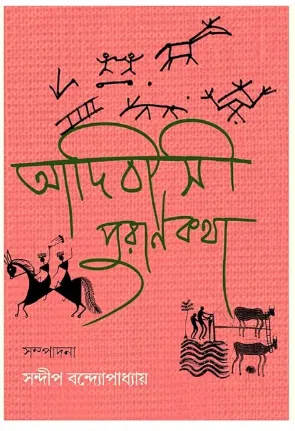 আদিবাসী
পুরাণ কথা
সম্পাদনা
সন্দীপ বন্দ্যোপাধ্যায়